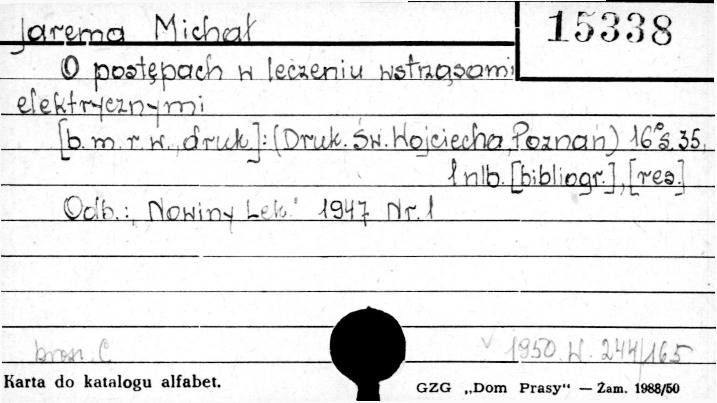 Jarema Michał
15338
O postępach w leczeniu wstrząsami
elektrycznymi
[b. m. r. w., druk.]: (Druk. Św. Wojciecha, Poznań) 16° s. 35,
1 nlb. [bibliogr.], [res.]
Odb.: „Nowiny Lek." 1947 Nr. 1
brosz. C
v 1950. W. 244/165
Karta do katalogu alfabet.
GZG „Dom Prasy" — Zam. 1988/50